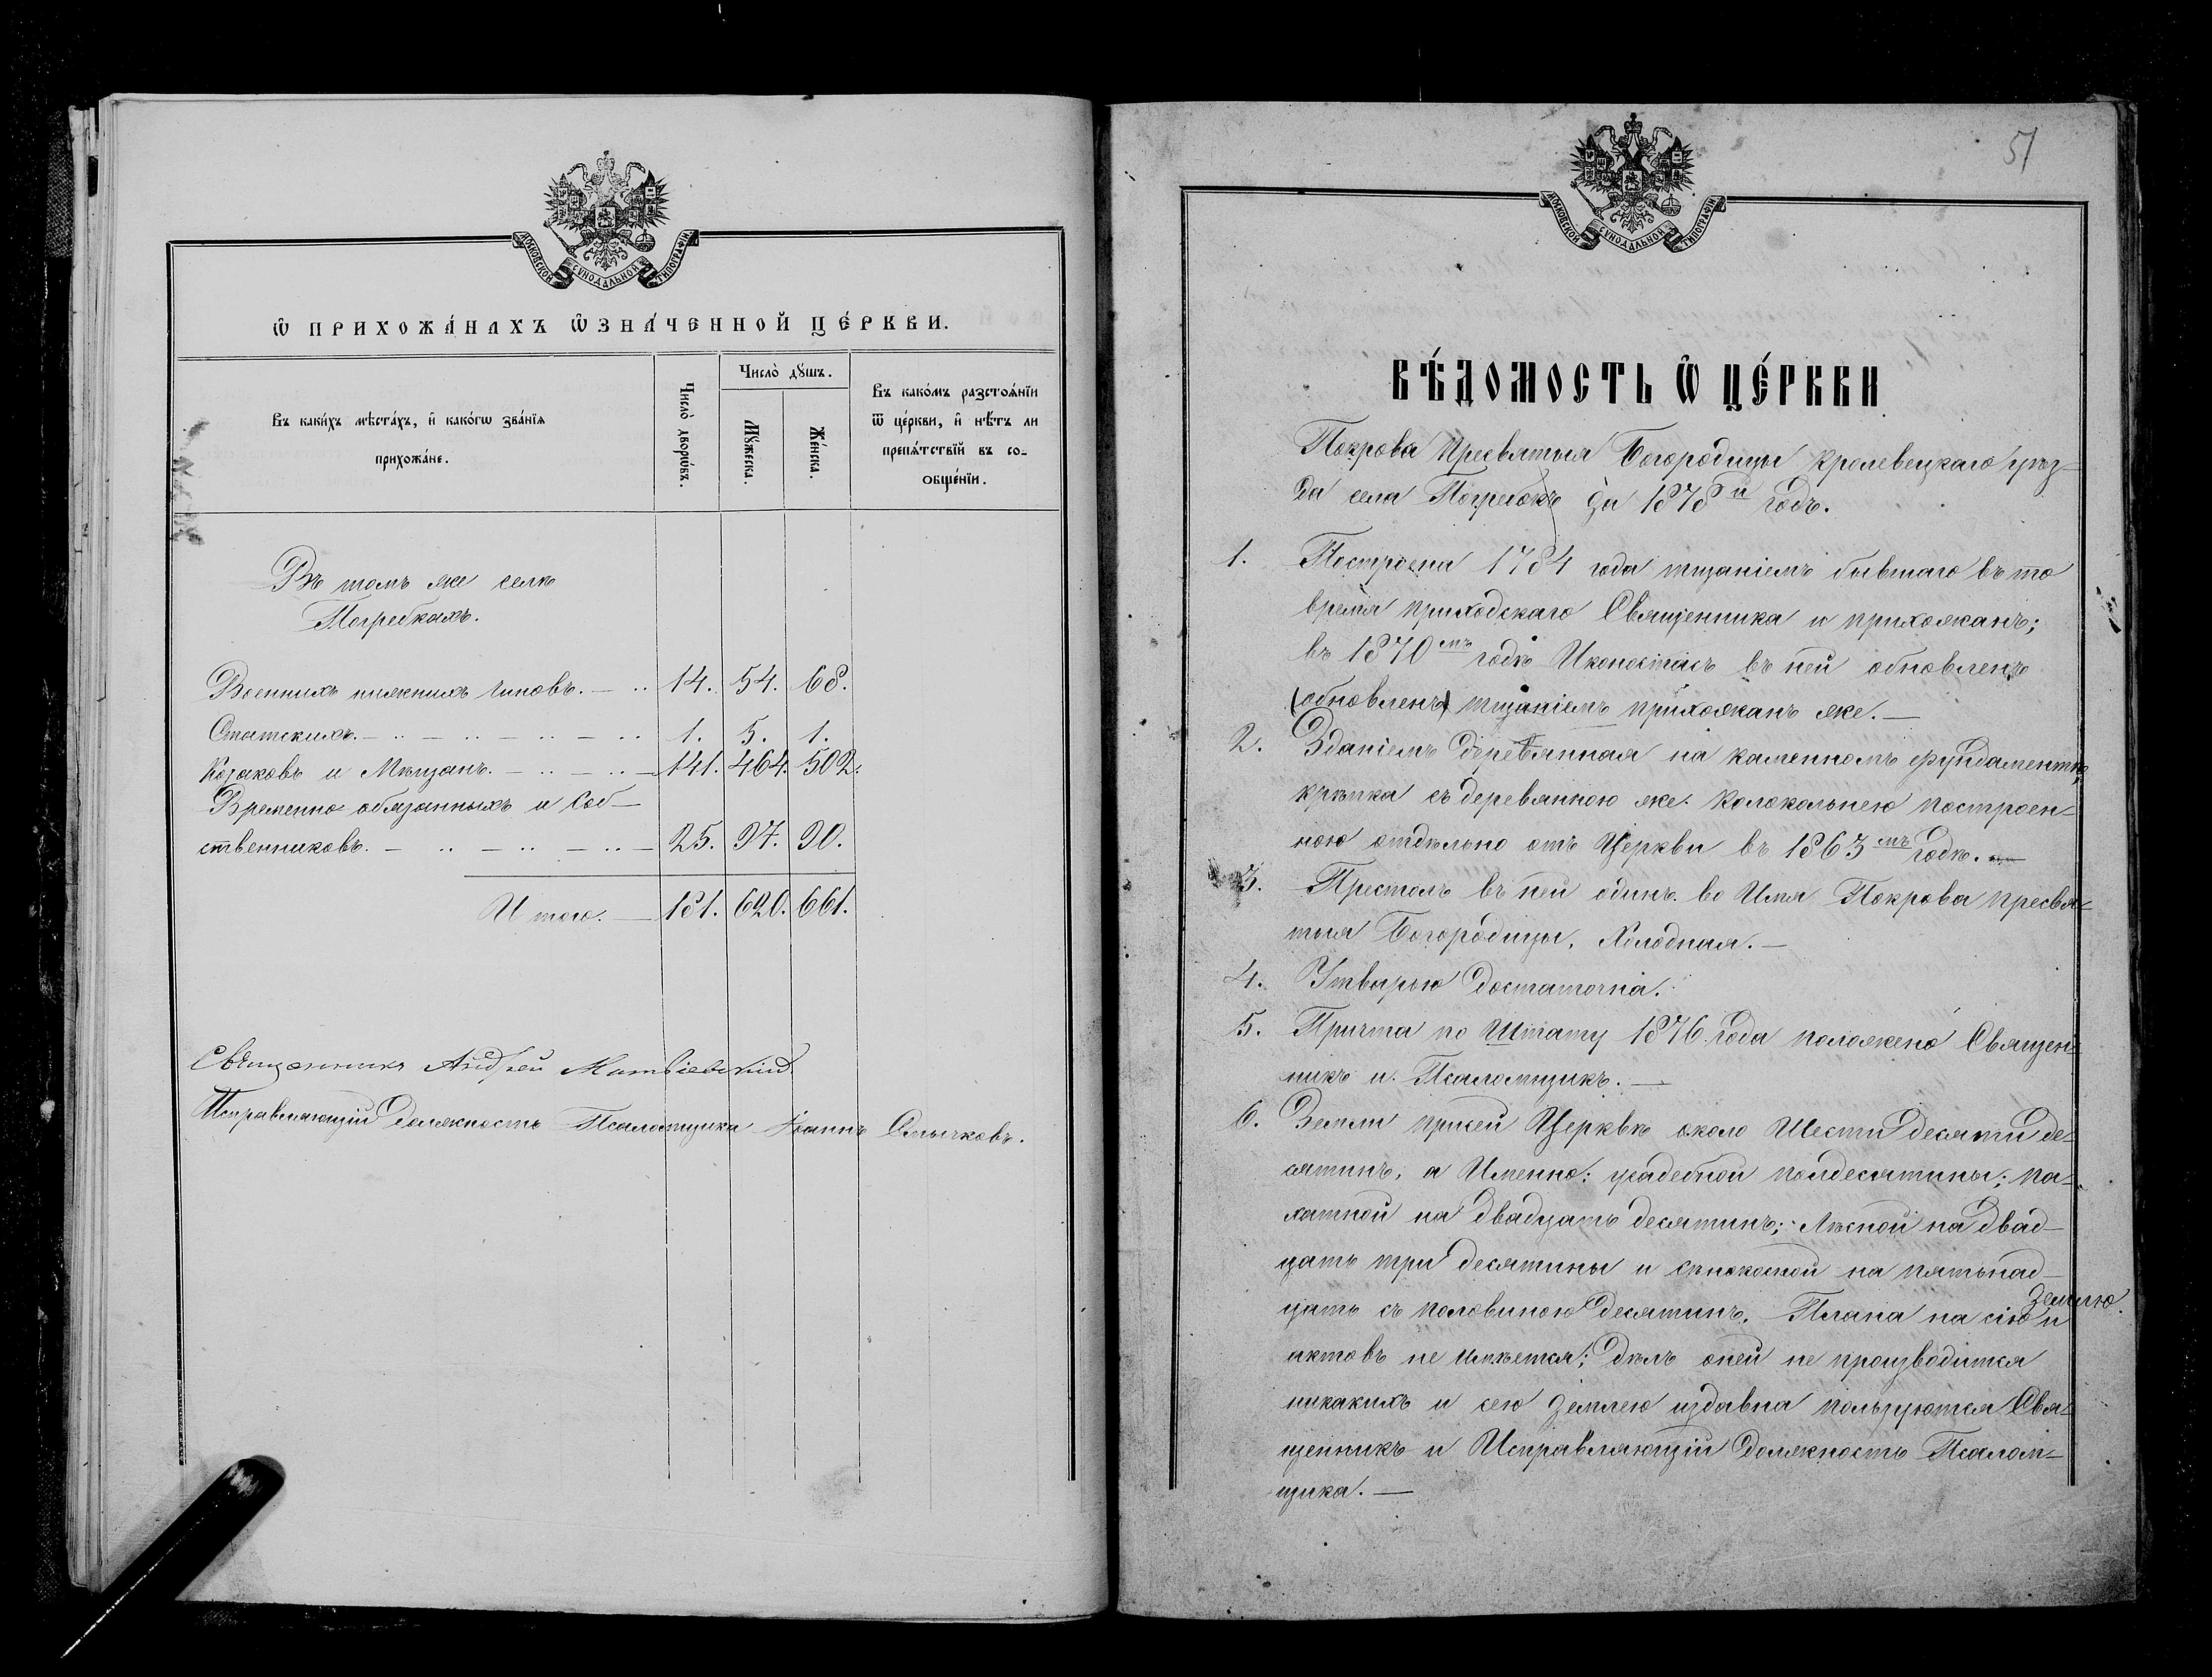 МОСКОВСКОЙ СѴНОДАЛЬНОЙ ТИПОГРАФІИ
Ѿ ПРИХОЖА́НАХЪ Ѿ́ЗНА́ЧЕННОЙ ЦЕ́РКВИ.
Въ каки́хъ мѣста́хъ, и҆ како́гѡ зва́нїѧ прихожа́не.
Число̀ дворѡ́въ.
Число̀ дꙋ́шъ.
Мꙋ́жеска.
Же́нска.
Въ како́мъ разстоѧ́нїи ѿ це́ркви, и҆ нѣ́тъ ли препѧ́тствїй въ сообще́нїи.
Въ томъ же селѣ
Погребкахъ.
Военныхъ нижнихъ чиновъ. — .. 14. 54. 68.
Статскихъ. — .. — .. — .. — .. 1. 5. 1.
Козаковъ и Мѣщанъ. — .. — .. — 141. 464. 502.
Временно обязанныхъ и Соб-
ственниковъ. — .. — .. — .. — 25. 97. 90.
Итого. — 181. 620. 661.
Священникъ Андрей Матвіевскій
Исправляющій должность Псаломщика Іоаннъ Смычковъ.
51
МОСКОВСКОЙ СѴНОДАЛЬНОЙ ТИПОГРАФІИ
ВѢ́ДОМОСТЬ Ѡ҆ ЦЕ́РКВИ
Покрова Пресвятыя Богородицы Кролевецкаго уѣз-
да села Погребокъ За 1878й годъ.
1. Построена 1784 года тщаніемъ бывшаго въ то
время приходскаго Священника и прихожанъ;
въ 1870мъ годѣ Иконостасъ въ ней обновленъ
(обновленъ) тщаніемъ прихожанъ же. —
2. Зданіемъ деревянная на каменномъ фундаментѣ,
крѣпка съ деревянною же колокольнею построен-
ною отдѣльно отъ Церкви въ 1863мъ годѣ. —
3. Престолъ въ ней одинъ. во Имя Покрова пресвя-
тыя Богородицы, Холодная. —
4. Утварью достаточна.
5. Причта по Штату 1876. года положено Священ-
никъ и Псаломщикъ. —
6. Земли при сей Церквѣ около Шестидесяти де-
сятинъ, а Именно: усадебной полдесятины; па-
хатной на двадцать десятинъ; Лѣсной на двад-
цать три десятины и сѣнокосной на пятьнад-
цать съ половиною десятинъ. Плана на сію землю и
актовъ не имѣется; дѣлъ оней не производится
никакихъ и сею землею издавна пользуются Свя-
щенникъ и Исправляющій должность Псалом-
щика. —